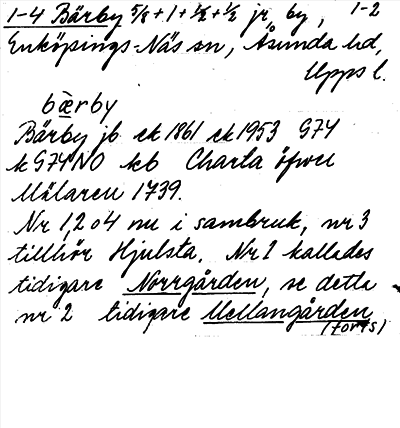 1-4 Bärby 5/8+1+1/2+1/2 jr, by, 1-2
Enköpings-Näs sn, Åsunda hd,
Upps l.
bæ̀rby
Bärby jb ek 1861 ek 1953 G74
k G74NO kb Charta öfwer
Mälaren 1739.
Nr 1,2 o 4 nu i sambruk, nr 3
tillhör Hjulsta. Nr 1 kallades
tidigare Norrgården, se detta
nr 2 tidigare Mellangården
(forts)